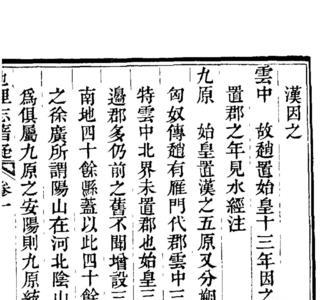 漢因之
雲中　故趙置始皇十三年因之
置郡之年見水經注
九原　始皇置漢之五原又分朔
匈奴傳趙有雁門代郡雲中三
特雲中北界未置郡也始皇三
邊郡多仍前之舊不聞增設三
南地四十餘縣蓋以此四十餘
之徐廣所謂陽山在河北陰山
爲俱屬九原之安陽則九原
地理志 卷一